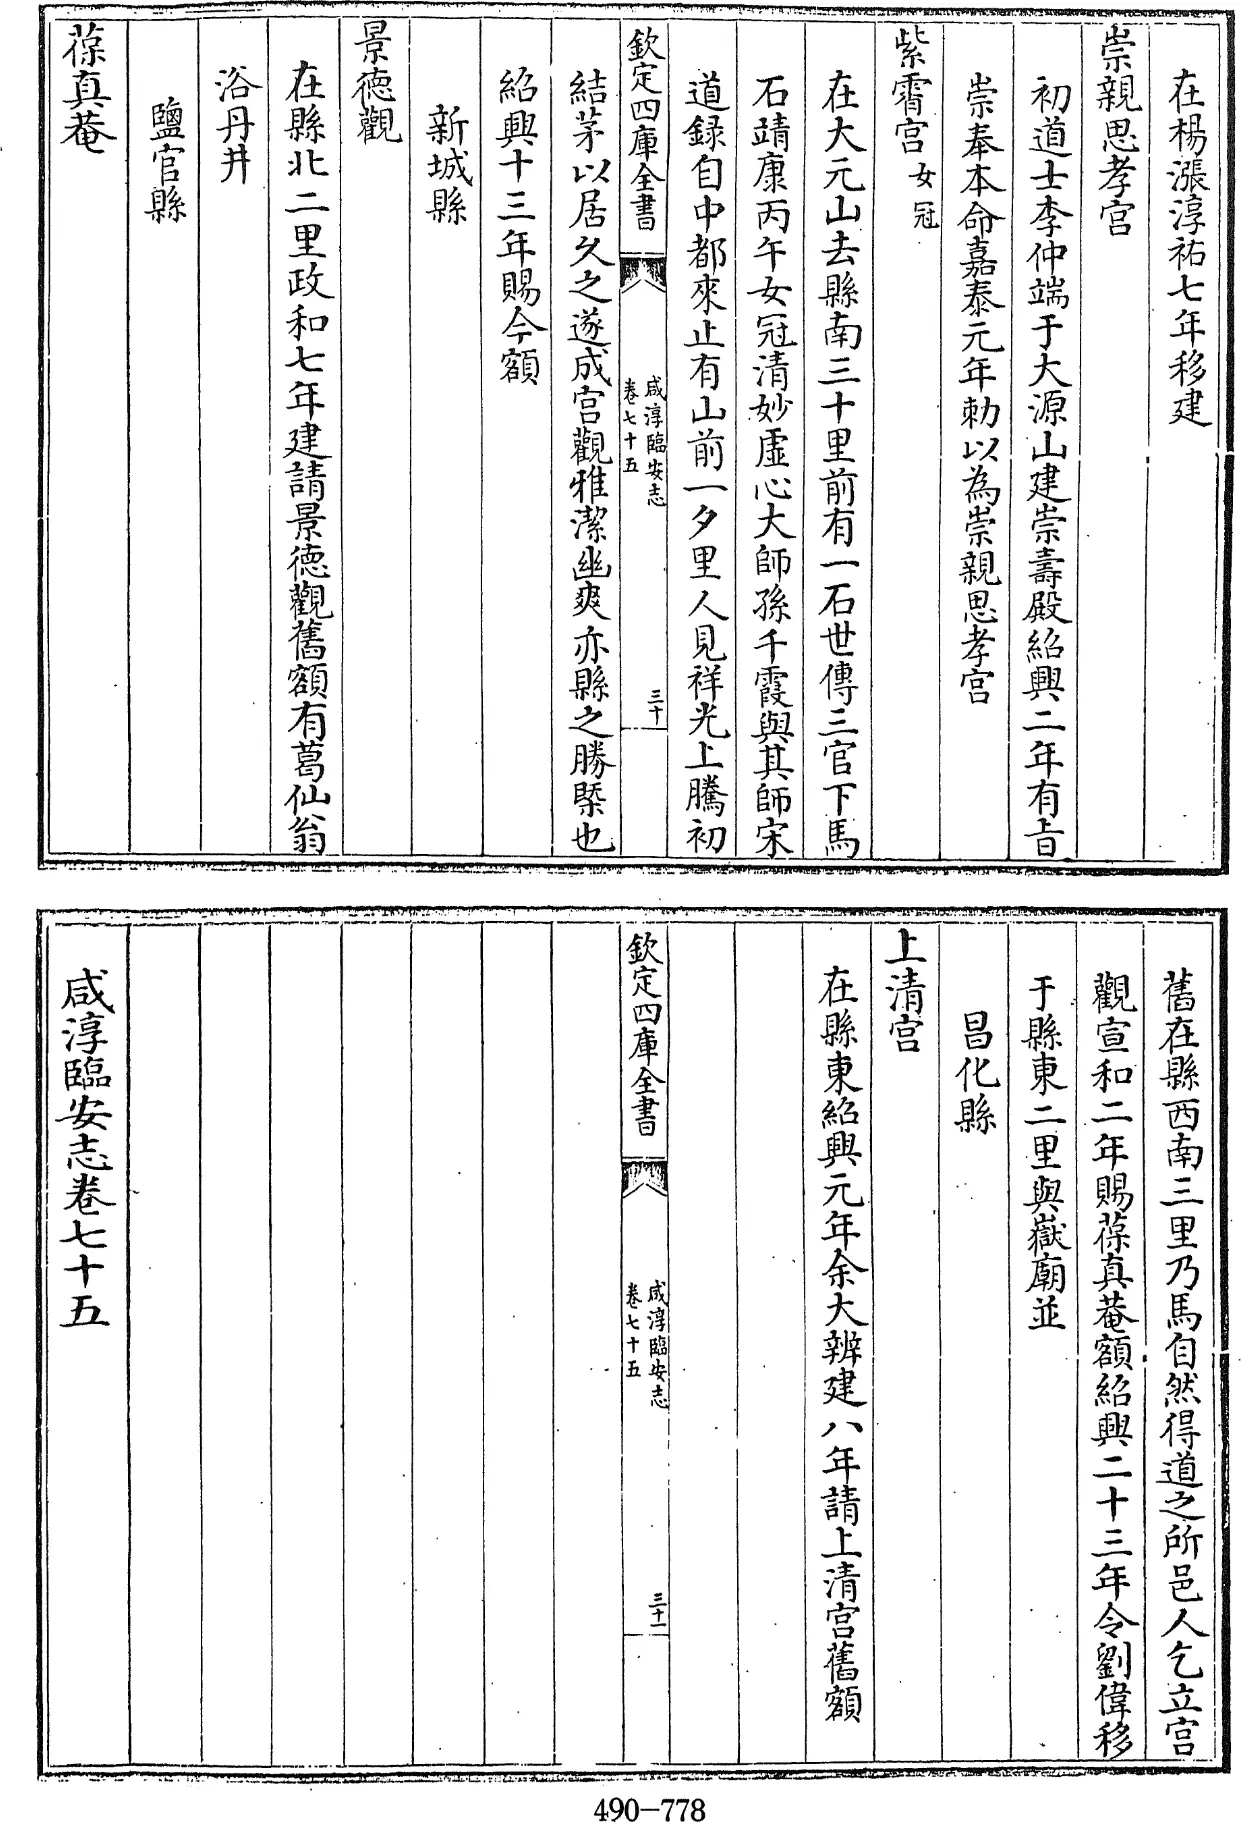 在楊漲淳祐七年移建
崇親思孝宫
初道士李仲端于大源山建崇壽殿紹興二年有㫖
崇奉本命嘉泰元年勅以為崇親思孝宫
紫霄宫女冠
在大元山去縣南三十里前有一石世傳三官下馬
石靖康丙午女冠清妙虚心大師孫千霞與其師宋
道録自中都來止有山前一夕里人見祥光上騰初
欽定四庫全書
咸淳臨安志
卷七十五
三十
結茅以居久之遂成宫觀雅潔幽爽亦縣之勝槩也
紹興十三年賜今額
新城縣
景徳觀
在縣北二里政和七年建請景徳觀舊額有葛仙翁
浴丹井
鹽官縣
葆真菴
舊在縣西南三里乃馬自然得道之所邑人乞立宫
觀宣和二年賜葆真菴額紹興二十三年令劉偉移
于縣東二里與嶽廟並
昌化縣
上清宫
在縣東紹興元年余大辨建八年請上清宫舊額
欽定四庫全書
咸淳臨安志
卷七十五
三十一
咸淳臨安志卷七十五
490-778